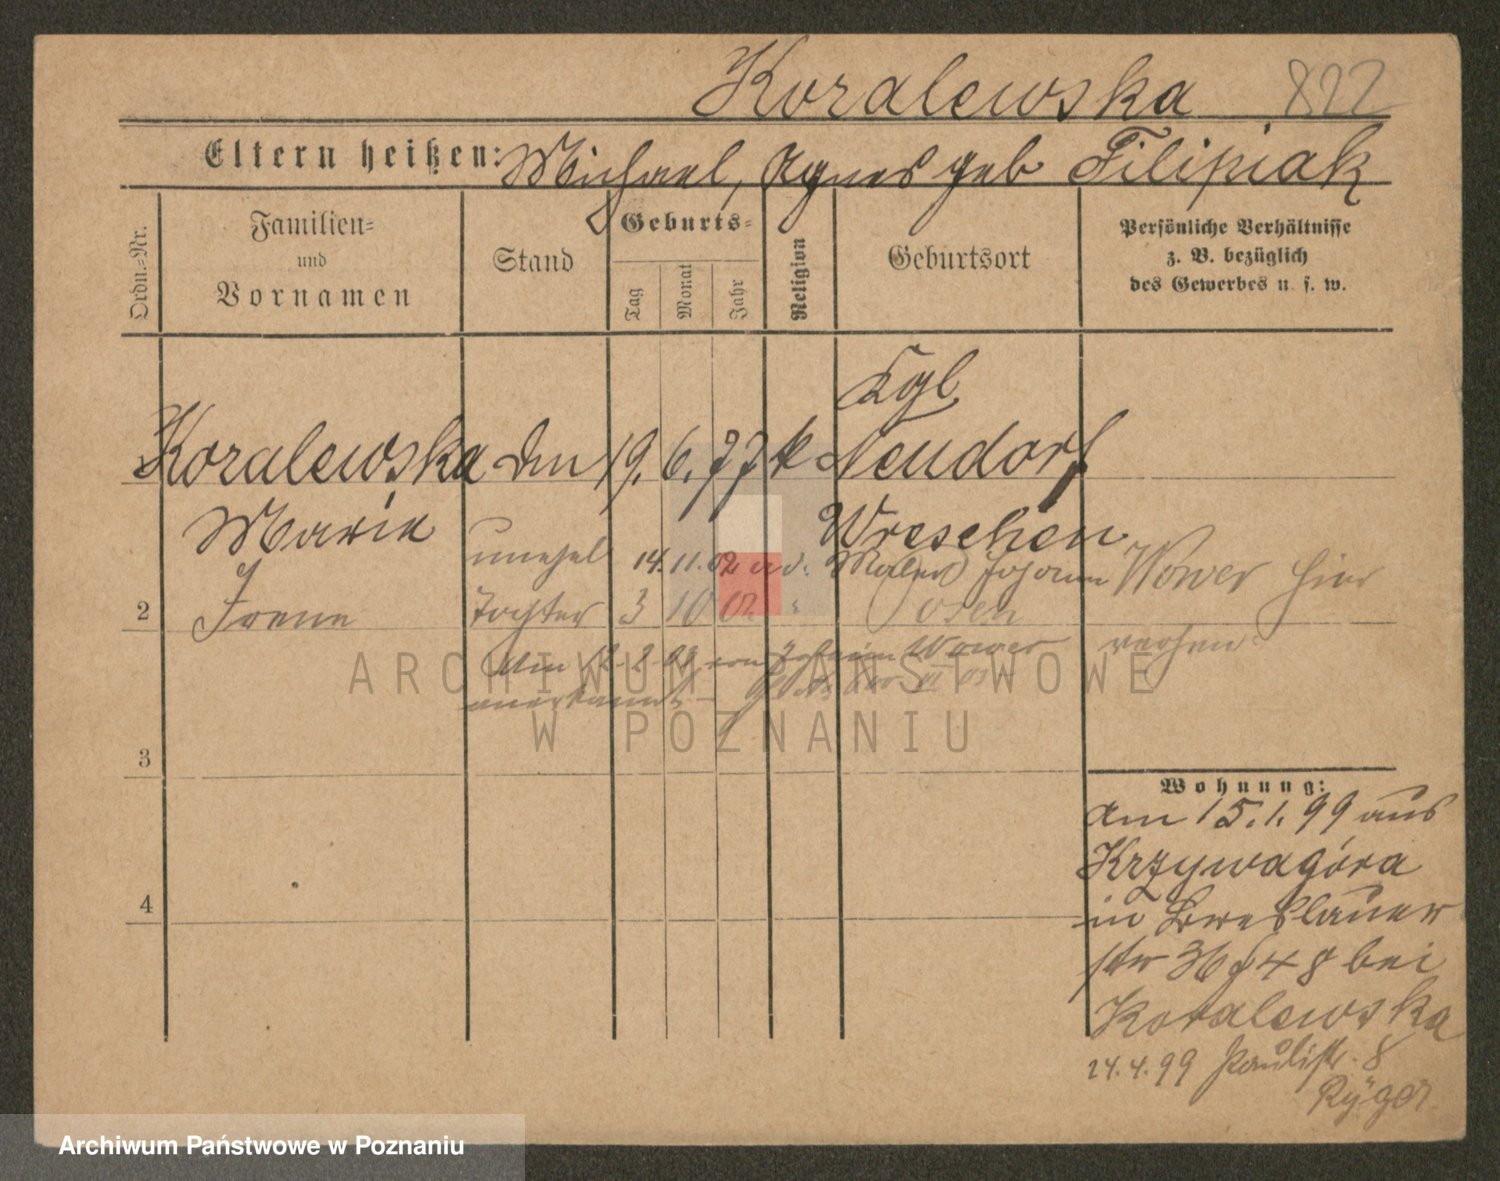 Koralewska 822
Eltern heißen: Michael, Agnes geb Filipiak
Ordn.-Nr.
Familien-
und
Vornamen
Stand
Geburts-
Tag
Monat
Jahr
Religion
Geburtsort
Persönliche Verhältnisse
z. B. bezüglich
des Gewerbes u. s. w.
Kgl
Koralewska 19. 6. 77 k Neudorf
Marie Wreschen
unehel 14.11.02 Johann Wower hier
2 Irene Tochter 3 10 02 " Posen
Wower
anerkannt
ARCHIWUM PAŃSTWOWE
W POZNANIU
3
4
Wohnung:
am 15.1.99 aus
Krzywagóra
in Breslauer
str 36 48 bei
Koralewska
24.4.99 Paulistr. 8
Ryger
Archiwum Państwowe w Poznaniu